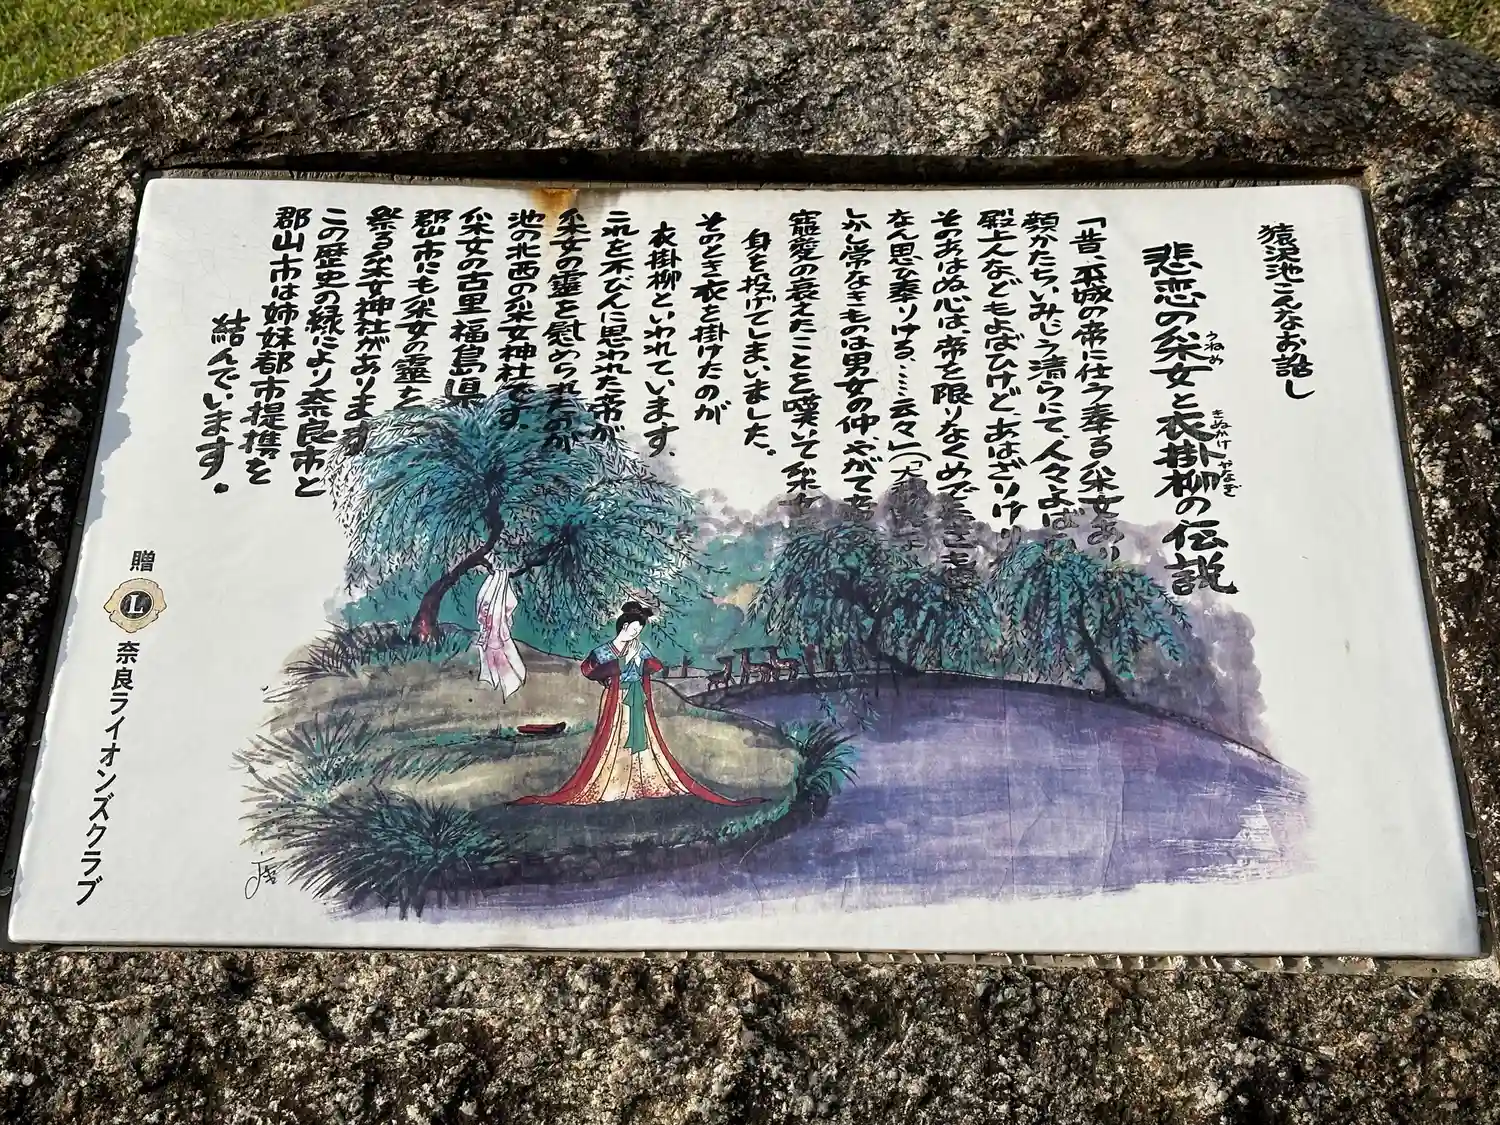 猿沢池こんなお話し
悲恋の采女と衣掛柳の伝説
うねめ
きぬかけ
やなぎ
「昔、平城の帝に仕う奉る采女あり
顔かたちいみじう清らにて、人々よば
殿上人などもよばひけど、あはざりけり
そのあはぬ心は、帝を限りなくめでたきも
なん思ひ奉りける……云々」(「大
しかし常なきものは男女の仲、やがて
寵愛の衰えたことを嘆いて采女
身を投げてしまいました。
そのとき衣を掛けたのが
衣掛柳といわれています。
これを不びんに思われた帝が
采女の霊を慰められたのが
池の北西の采女神社です。
采女の古里福島県
郡山市にも采女の霊を
祭る采女神社があります
この歴史の縁により奈良市と
郡山市は姉妹都市提携を
結んでいます。
贈
L
奈良ライオンズクラブ